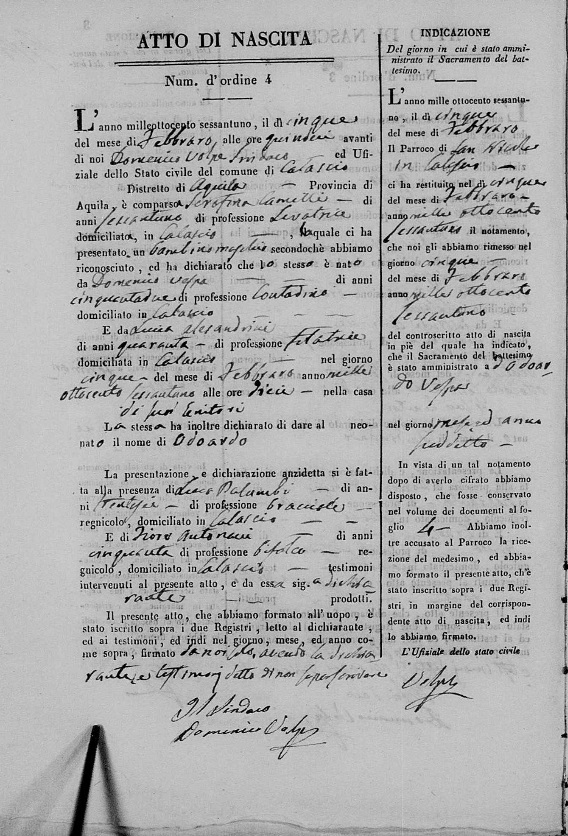 ATTO DI NASCITA
Num. d'ordine 4
L'anno milleottocento sessantuno, il dì cinque
del mese di Febbraro, alle ore quindici avanti
di noi Domenico Volpe Sindaco ed Ufi-
ziale dello Stato civile del comune di Calascio
Distretto di Aquila — Provincia di
Aquila, è comparsa Serafina — di
anni sessantuno di professione Levatrice
domiciliata, in Calascio — la quale ci ha
presentato un secondochè abbiamo
riconosciuto, ed ha dichiarato che lo stesso è nato
da Domenico Volpe — di anni
cinquantadue di professione Contadino —
domiciliato in Calascio —
E da Lucia Alesandrini
di anni quaranta — di professione filatrice
domiciliata in Calascio — nel giorno
cinque — del mese di Febbraro anno mille
ottocento sessantuno alle ore dieci — nella casa
di suoi Genitori
La stessa ha inoltre dichiarato di dare al neo-
nato il nome di Odoardo
La presentazione, e dichiarazione anzidetta si è fat-
ta alla presenza di Luca Palumbi — di an-
ni — di professione bracciale —
regnicolo, domiciliato in Calascio — —
E di — di anni
cinquanta di professione bifolco — re-
gnicolo, domiciliato in Calascio — testimoni
intervenuti al presente atto, e da essa sig.a dichia
rante — prodotti.
Il presente atto, che abbiamo formato all'uopo, è
stato iscritto sopra i due Registri, letto al dichiarante,
ed ai testimoni, ed indi nel giorno, mese, ed anno co-
me sopra, firmato da noi solo, avendo la dichia
rante, e testimonj detto di non saper scrivere
Il Sindaco
Domenico Volpe
INDICAZIONE
Del giorno in cui è stato ammi-
nistrato il Sacramento del bat-
tesimo.
L'anno mille ottocento sessantu-
no, il dì cinque
del mese di Febbraro
Il Parroco di San Nicola
in Calascio —
ci ha restituito nel dì cinque
del mese di Febbraro —
anno mille ottocento
sessantuno il notamento,
che noi gli abbiamo rimesso nel
giorno cinque
del mese di Febbraro
anno mille ottocento
sessantuno
del controscritto atto di nascita
in piè del quale ha indicato,
che il Sacramento del battesimo
è stato amministrato a d'Odoar
do Volpe
nel giorno mese ed anno
suddetto —
In vista di un tal notamento
dopo di averlo cifrato abbiamo
disposto, che fosse conservato
nel volume dei documenti al fo-
glio 4 — Abbiamo inol-
tre accusato al Parroco la rice-
zione del medesimo, ed abbia-
mo formato il presente atto, ch'è
stato inscritto sopra i due Regi-
stri, in margine del corrispon-
dente atto di nascita, ed indi
lo abbiamo firmato.
L'Ufiziale dello stato civile
Volpe